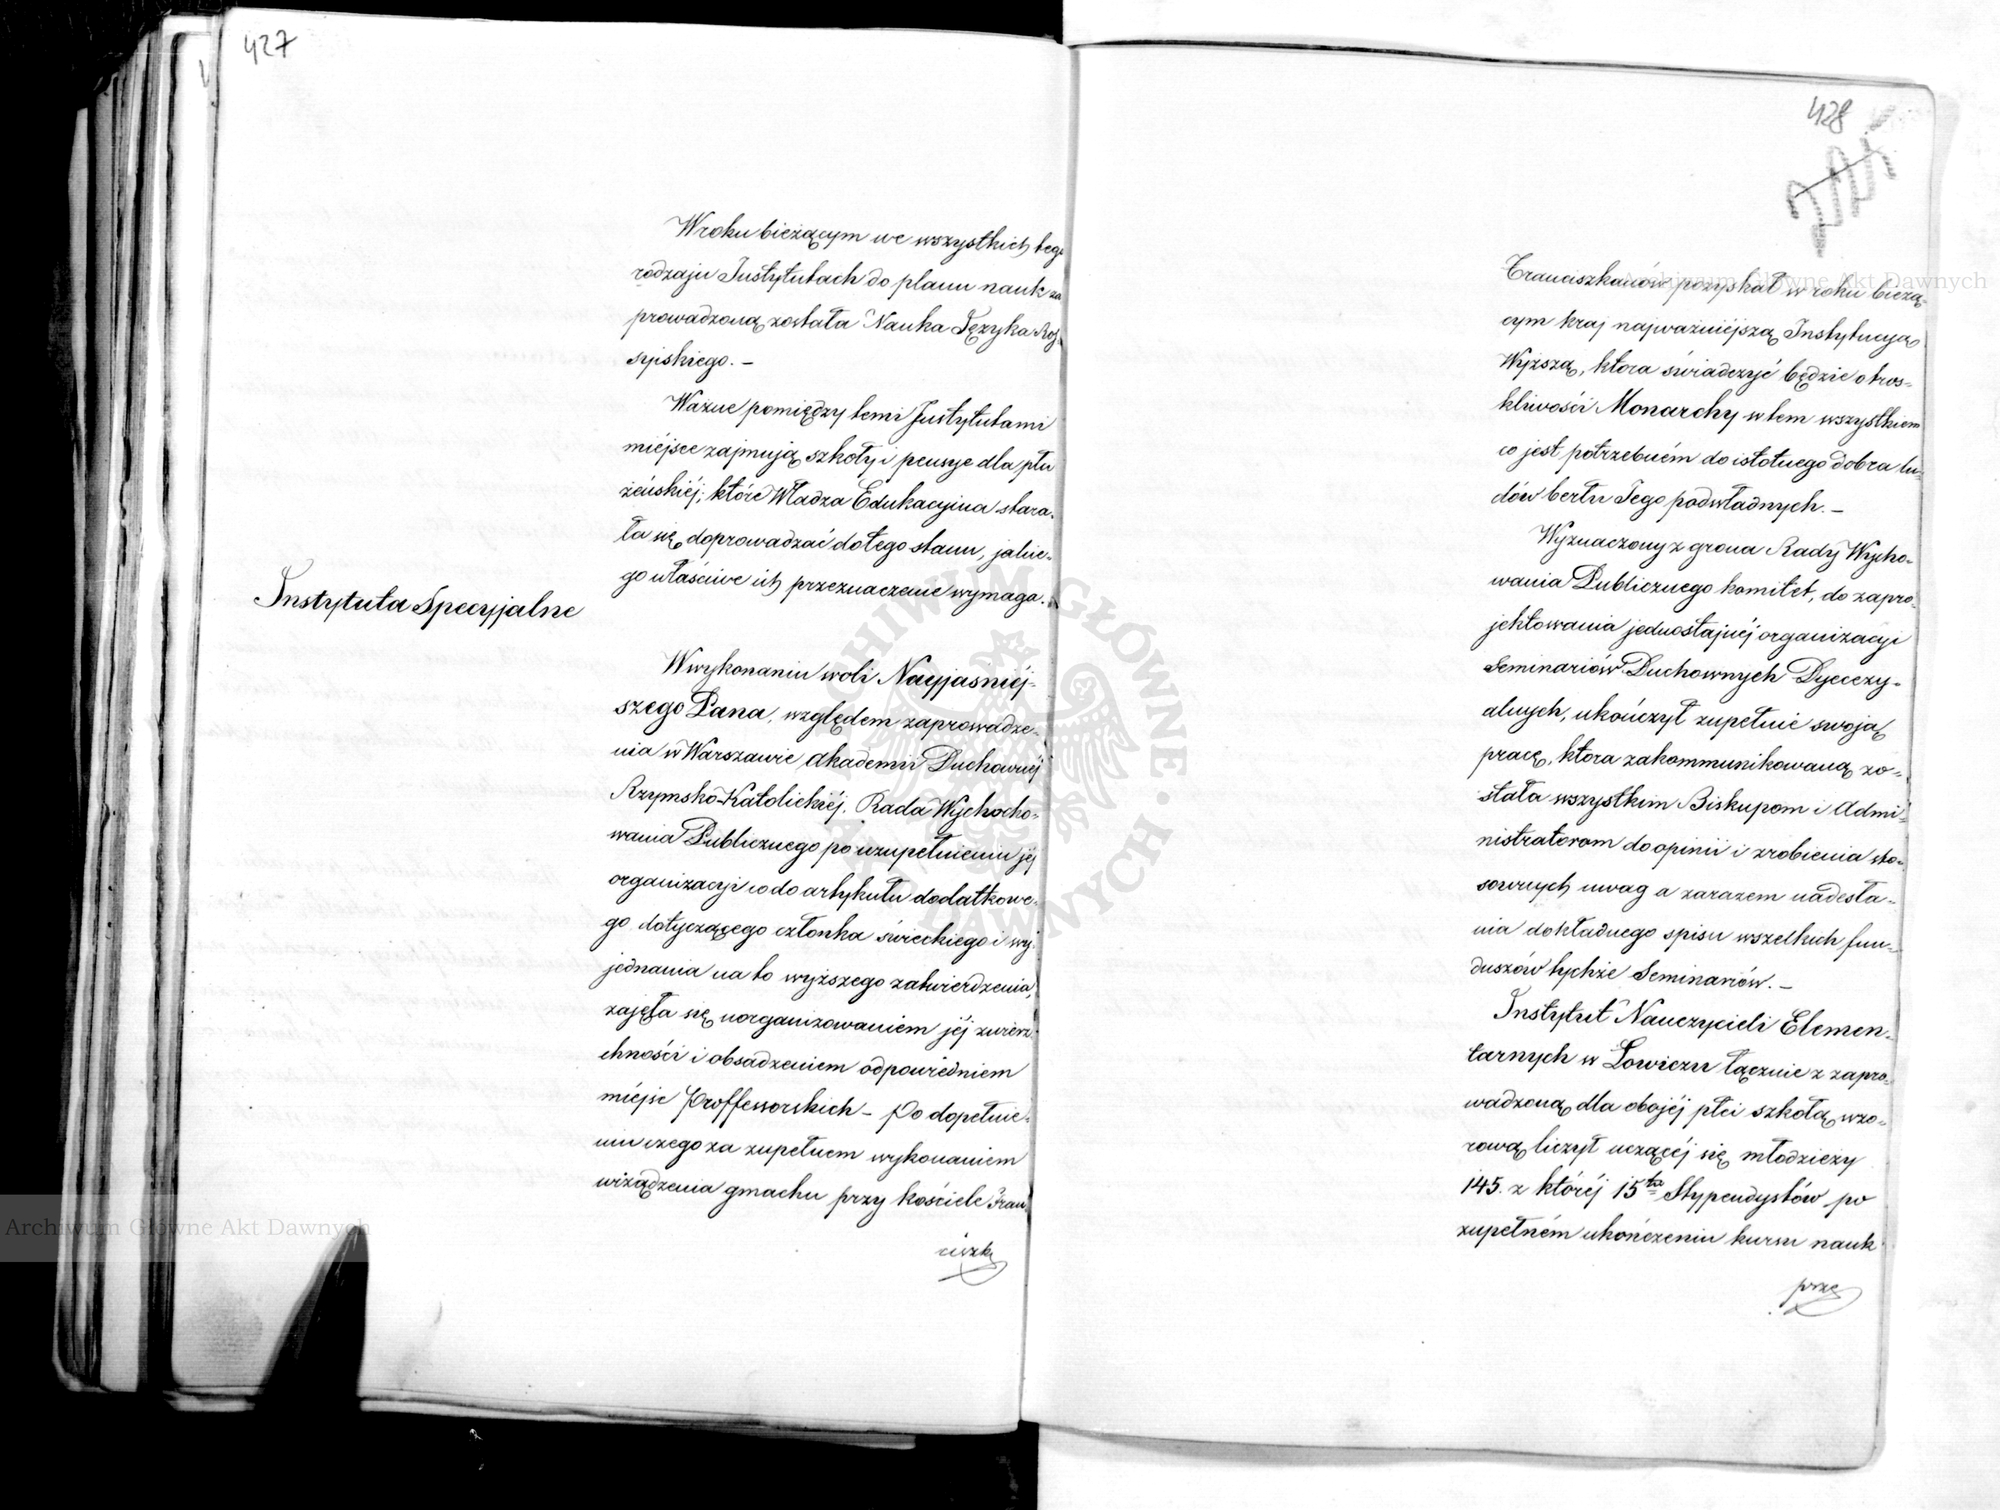 427
W roku bieżącym we wszystkich tego
rodzaju Instytutach do planu nauk za
prowadzoną została Nauka Języka Ros-
syjskiego. –
Ważne pomiędzy temi Instytutami
miejsce zajmują szkoły i pensye dla płci
żeńskiéj; które Władza Edukacyjna stara-
ła się doprowadzać do tego stanu, jakie-
go właściwe ich przeznaczenie wymaga. –
Instytuta Specyjalne
W wykonaniu woli Nayjaśniéj-
szego Pana, względem zaprowadze-
nia w Warszawie Akademii Duchownéj
Rzymsko-Katolickiéj, Rada Wychocho-
wania Publicznego po uzupełnieniu jéj
organizacyi co do artykułu dodatkowe-
go dotyczącego członka świeckiego i wy-
jednania na to wyższego zatwierdzenia,
zajęła się uorganizowaniem jéj zwierz-
chności i obsadzeniem odpowiedniem
miéjsc Proffessorskich – Po dopełnie-
niu czego za zupełnem wykonaniem
urządzenia gmachu przy kościele Fran-
ciszk
428
Franciszkanów pozyskał w roku bieżą-
cym kraj najważniéjszą Instytucyą
Wyższą, która świadczyć będzie o tros-
kliwości Monarchy w tem wszystkiem
co jest potrzebném do istotnego dobra lu-
dów berłu Jego podwładnych. –
Wyznaczony z grona Rady Wycho-
wania Publicznego komitet, do zapro-
jektowania jednostajnéj organizacyi
Seminariów Duchownych Dyecezy-
alnych, ukończył zupełnie swoją
pracę, która zakommunikowaną zo-
stała wszystkim Biskupom i Admi-
nistratorom do opinii i zrobienia sto-
sownych uwag a zarazem nadesła-
nia dokładnego spisu wszelkich fun-
duszów tychże Seminariów. –
Instytut Nauczycieli Elemen-
tarnych w Łowiczu łącznie z zapro-
wadzoną dla obojéj płci szkołą wzo-
rową liczył uczącéj się młodzieży
145. z któréj 15tu Stypendystów po
zupełném ukończeniu kursu nauk
prze
Archiwum Główne Akt Dawnych
Archiwum Główne Akt Dawnych
ARCHIWUM GŁÓWNE AKT DAWNYCH